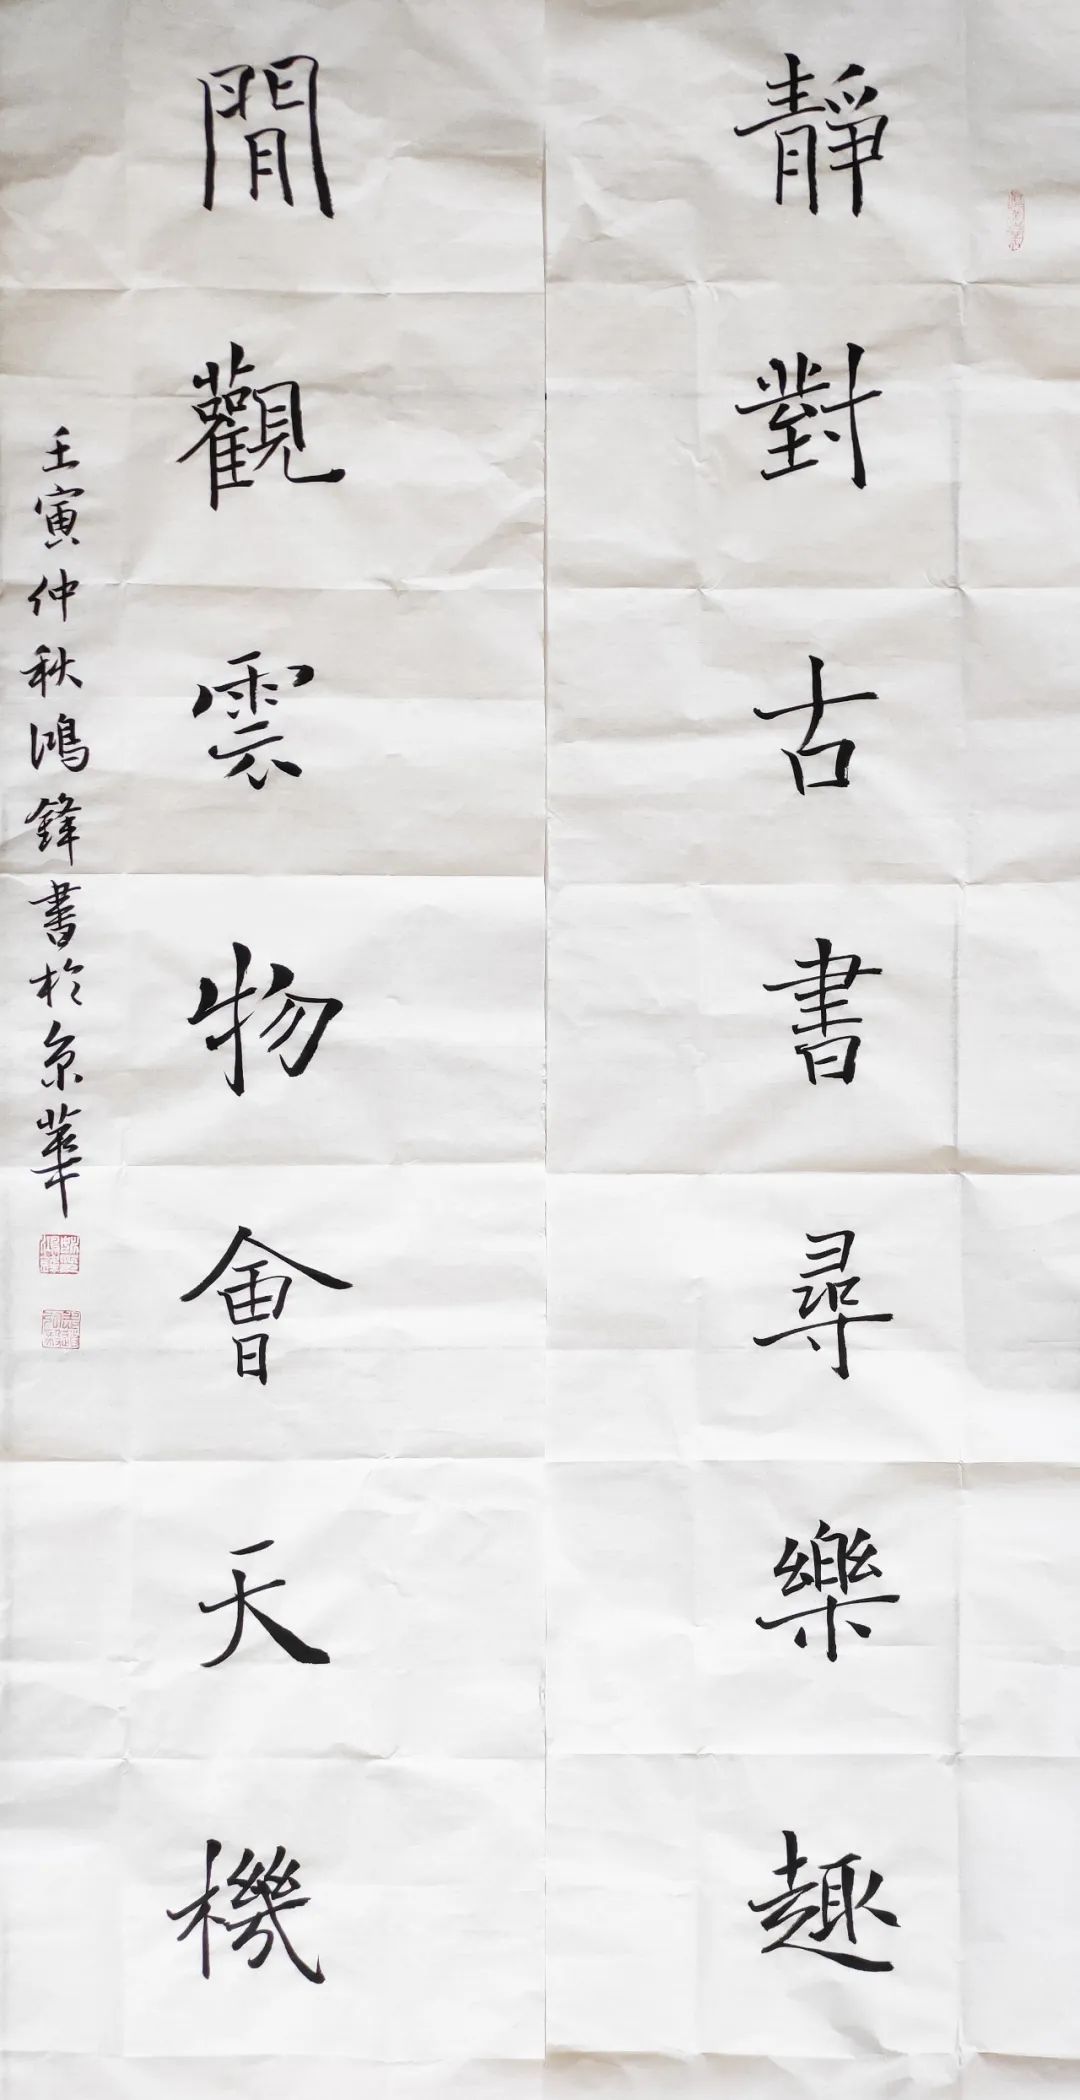 靜對古書尋樂趣
閒觀雲物會天機
壬寅仲秋鴻鋒書於京華